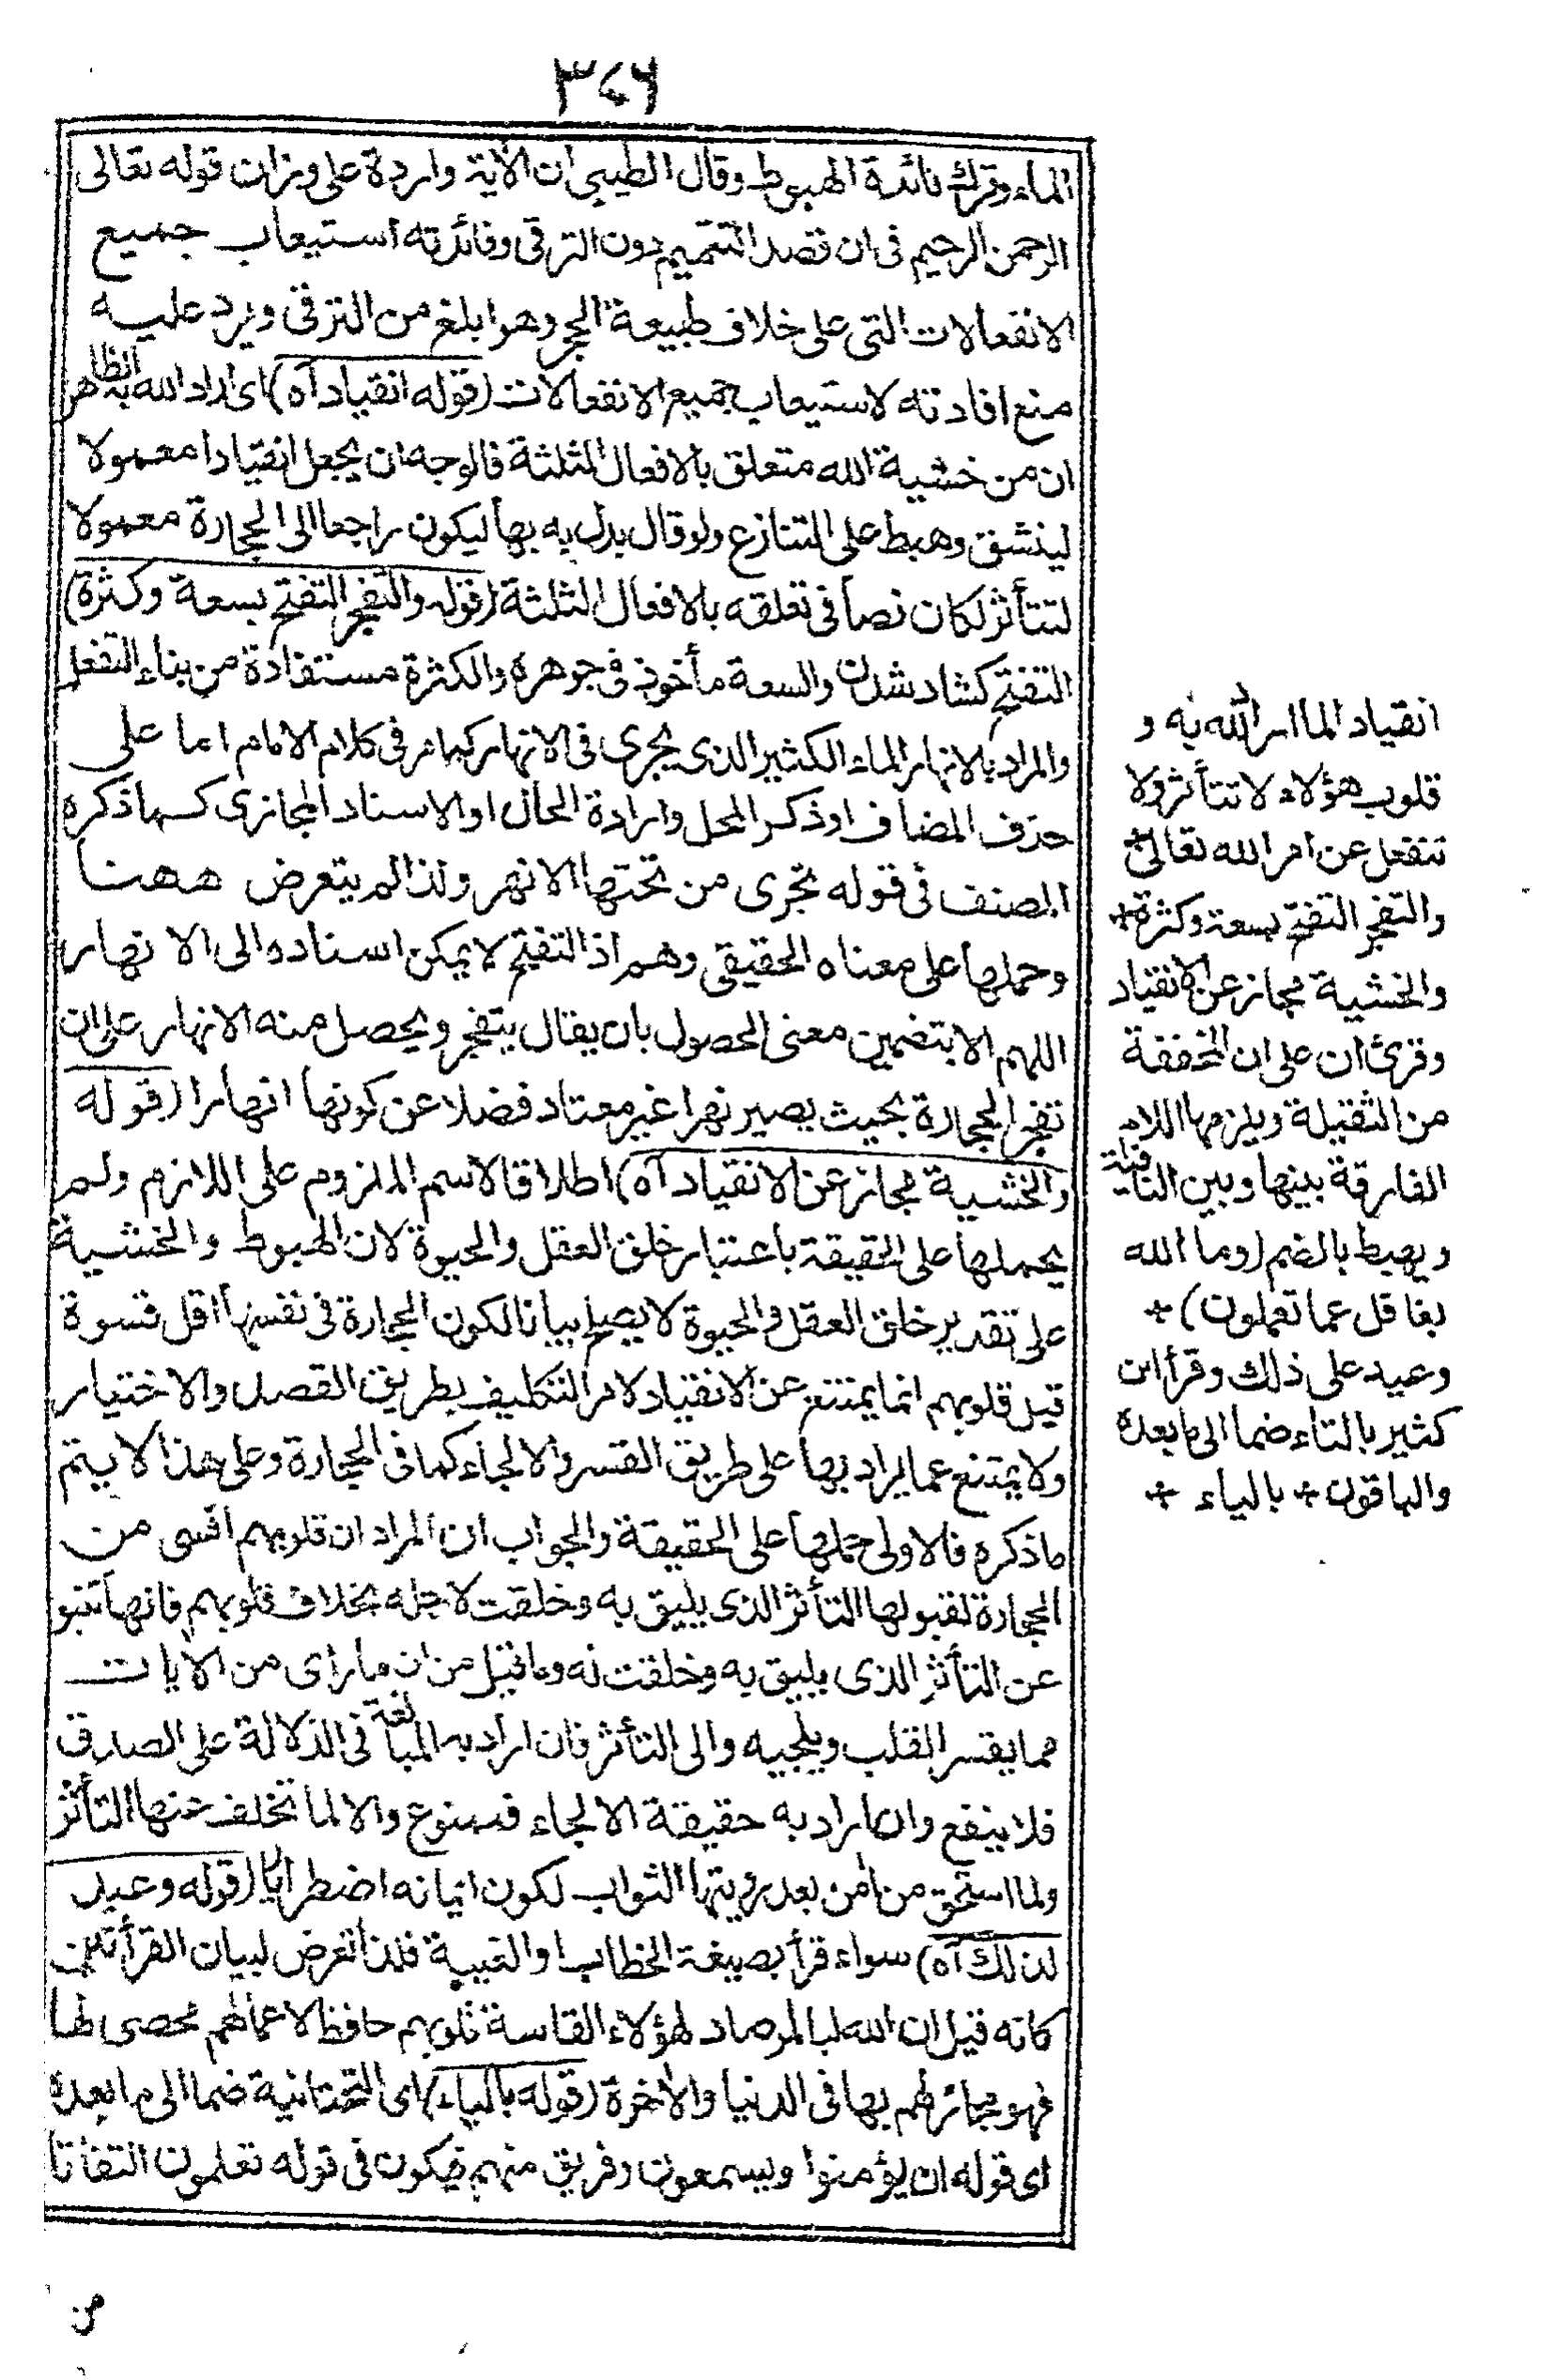 ٣٤٦
الماء وترك فائدة الهبوط وقال الطيبي ان الآية واردة على وزان قوله تعالى
الرحمن الرحيم فى ان قصد التتميم دون الترقى وفائدته استيعاب جميع
الانفعالات التى على خلاف طبيعة الحجر وهو ابلغ من الترقى ويرد عليه
منع افادته لاستيعاب جميع الانفعالات (قوله انقيادا آه) اى اراد الله به الظاهر
ان من خشية الله متعلق بالافعال الثلثة فالوجه ان يجعل انقيادا معمولا
لينشق وهبط على التنازع ولو قال بدل به بها ليكون راجعا الى الحجارة معمولا
لتتأثر لكان نصا فى تعلقه بالافعال الثلثة (قوله والتفجر التفتح بسعة وكثرة)
التفتح كشاد شدن والسعة مأخوذ فى جوهره والكثرة مستفادة من بناء التفعل
والمراد بالانهار الماء الكثير الذى يجرى فى الانهار كما مر فى كلام الامام اما على
حذف المضاف او ذكر المحل وارادة الحال او الاسناد المجازى كما ذكره
المصنف فى قوله تجرى من تحتها الانهر ولذا لم يتعرض ههنا
وحملها على معناه الحقيقى وهم اذ التفتح لا يمكن اسناده الى الانهار
اللهم الا بتضمين معنى الحصول بان يقال يتفجر ويحصل منه الانهار على ان
تفجر الحجارة بحيث يصير نهرا غير معتاد فضلا عن كونها انهارا (قوله
والخشية مجاز عن الانقياد آه) اطلاقا لاسم الملزوم على اللازم ولم
يحملها على الحقيقة باعتبار خلق العقل والحيوة لان الهبوط والخشية
على تقدير خلق العقل والحيوة لا يصلح بيانا لكون الحجارة فى نفسها اقل قسوة
قيل قلوبهم انما يمتنع عن الانقياد لامر التكليف بطريق القصد والاختيار
ولا يمتنع عما يراد بها على طريق القسر والالجاء كما فى الحجارة وعلى هذا لا يتم
ما ذكره فالاولى حملها على الحقيقة والجواب ان المراد ان قلوبهم اقسى من
الحجارة لقبولها التأثر الذى يليق به وخلقت لاجله بخلاف قلوبهم فانها تنبو
عن التأثر الذى يليق به وخلقت له وما قيل من ان ما رأى من الآيات
مما يقسر القلب ويلجيه والى التأثر فان اراد به المبالغة فى الدلالة على الصدق
فلا ينفع وان اراد به حقيقة الالجاء فممنوع والا لما تخلف عنها التأثر
ولما استحق من آمن بعد رؤيتها الثواب لكون ايمانه اضطرابا (قوله وعيد
لذلك آه) سواء قرأ بصيغة الخطاب او الغيبة فلذا تعرض لبيان القرأتين
كانه قيل ان الله لبالمرصاد لهؤلاء القاسة قلوبهم حافظ لاعمالهم محصى لها
فهو مجازيهم بها فى الدنيا والآخرة (قوله بالياء) اى التحتانية ضما الى ما بعده
اى قوله ان يؤمنوا ويسمعون وفريق منهم فيكون فى قوله تعلمون التفاتا
من
انقياد الما اراد الله به و
قلوب هؤلاء لا تتأثر ولا
تنفعل عن امر الله تعالى +
والتفجر التفتح بسعة وكثرة +
والخشية مجاز عن الانقياد
وقرئ ان على ان المخففة
من الثقيلة ويلزمها اللام
الفارقة بينها وبين النافية
ويهبط بالضم (وما الله
بغافل عما تعملون) +
وعيد على ذلك وقرأ ابن
كثير بالتاء ضما الى ما بعده
والباقون + بالياء +